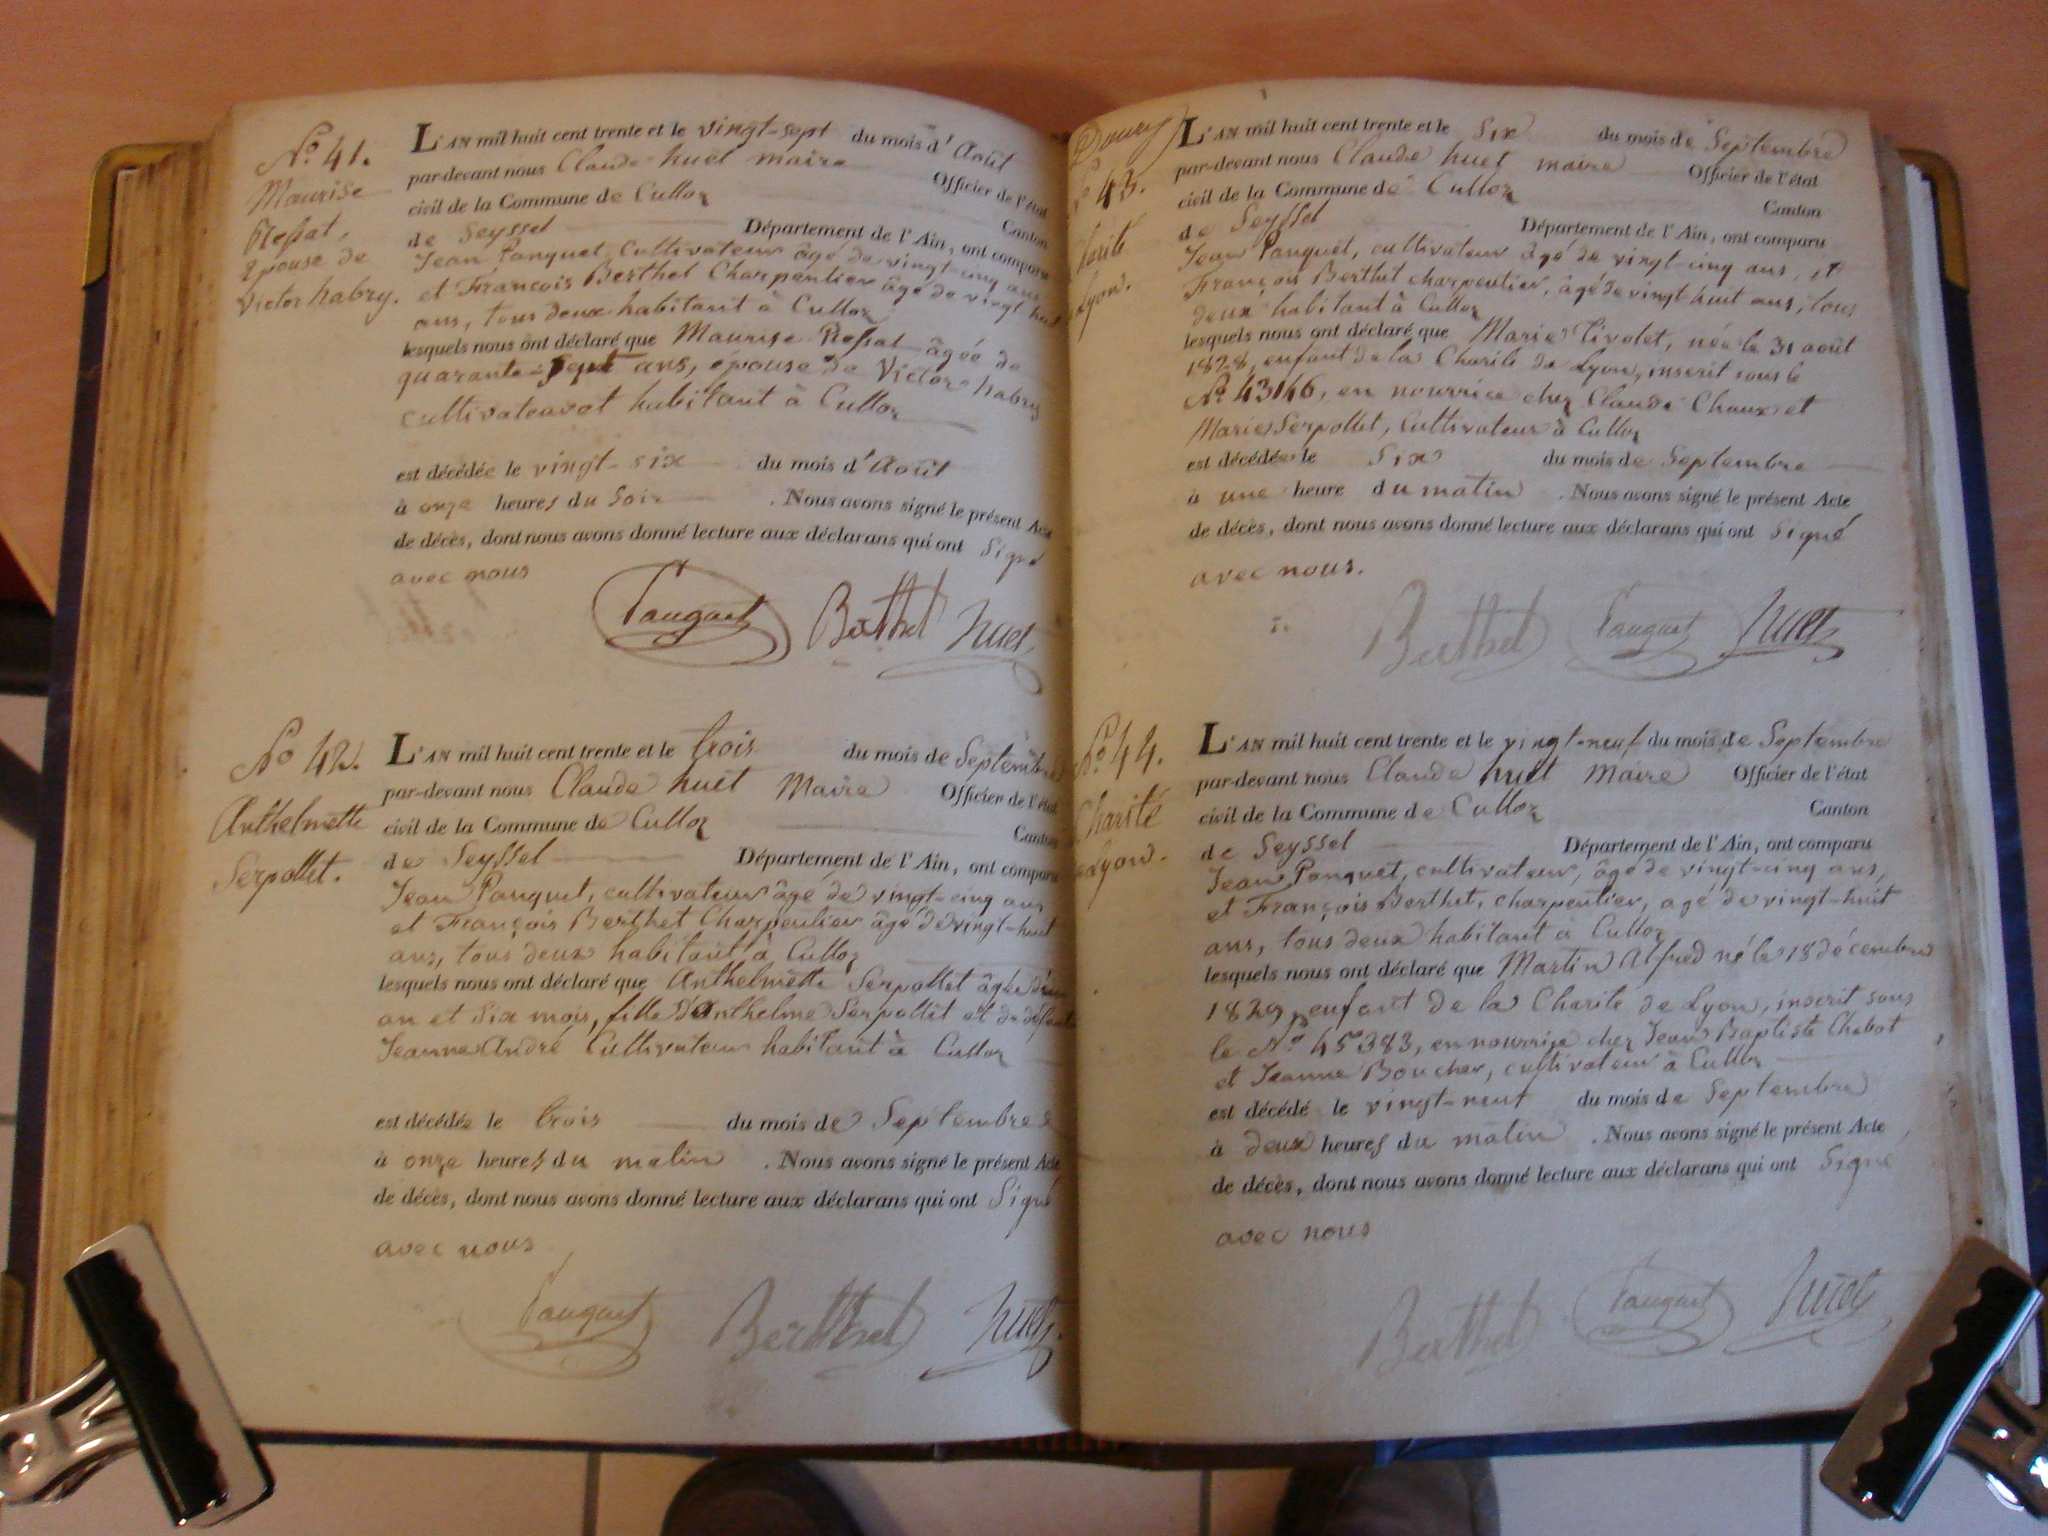 N.o 41.
Maurise
Ressat,
Epouse de
Victor habry.
L'AN mil huit cent trente et le vingt-sept du mois d'Août
par-devant nous Claude huet maire Officier de l'état
civil de la Commune de Culloz Canton
de Seyssel Département de l'Ain, ont comparu
Jean Panquet, Cultivateur âgé de vingt-cinq ans
et François Berthet Charpentier âgé de vingt huit
ans, tous deux habitant à Culloz
lesquels nous ont déclaré que Maurise Ressat âgée de
quarante-sept ans, épouse de Victor habry
habitant à Culloz
est décédée le vingt-six du mois d'Août
à onze heures du Soir . Nous avons signé le présent Acte
de décès, dont nous avons donné lecture aux déclarans qui ont Signé
avec nous
Panquet Berthet huet
N.o 42.
Anthelmette
Serpollet.
L'AN mil huit cent trente et le trois du mois de Septembre
par-devant nous Claude huet Maire Officier de l'état
civil de la Commune de Culloz Canton
de Seyssel Département de l'Ain, ont comparu
Jean Panquet, cultivateur âgé de vingt-cinq ans
et François Berthet Charpentier âgé de vingt-huit
ans, tous deux habitant à Culloz
lesquels nous ont déclaré que Anthelmette Serpollet âgée d'un
an et Six mois, fille d'Anthelme Serpollet et de défunte
Jeanne André Cultivateur habitant à Culloz
est décédée le trois du mois de Septembre
à onze heures du matin . Nous avons signé le présent Acte
de décès, dont nous avons donné lecture aux déclarans qui ont Signé
avec nous
Panquet Berthet huet
N.o 43.
Charité
Lyon.
L'AN mil huit cent trente et le Six du mois de Septembre
par-devant nous Claude huet maire Officier de l'état
civil de la Commune de Culloz Canton
de Seyssel Département de l'Ain, ont comparu
Jean Panquet, cultivateur âgé de vingt-cinq ans, et
François Berthet charpentier, âgé de vingt huit ans, tous
deux habitant à Culloz
lesquels nous ont déclaré que Marie Tivolet, née le 31 août
1828, enfant de la Charité de Lyon, inscrit sous le
N.o 43146, en nourrice chez Claude Chaux et
Marie Serpollet, Cultivateur à Culloz
est décédée le Six du mois de Septembre
à une heure du matin . Nous avons signé le présent Acte
de décès, dont nous avons donné lecture aux déclarans qui ont Signé
avec nous.
Berthet Panquet huet
N.o 44.
Charité
Lyon.
L'AN mil huit cent trente et le vingt-neuf du mois de Septembre
par-devant nous Claude huet Maire Officier de l'état
civil de la Commune de Culloz Canton
de Seyssel Département de l'Ain, ont comparu
Jean Panquet, cultivateur, âgé de vingt-cinq ans,
et François Berthet, charpentier, agé de vingt-huit
ans, tous deux habitant à Culloz
lesquels nous ont déclaré que Martin Alfred né le 18 décembre
1829, enfant de la Charité de Lyon, inscrit sous
le N.o 45383, en nourrice chez Jean Baptiste Chabot
et Jeanne Boucher, cultivateur à Culloz
est décédé le vingt-neuf du mois de Septembre
à deux heures du matin . Nous avons signé le présent Acte
de décès, dont nous avons donné lecture aux déclarans qui ont Signé
avec nous
Berthet Panquet huet